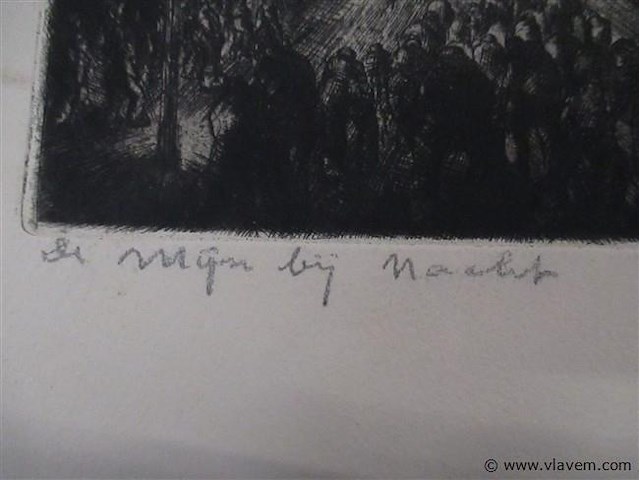 De Mijn bij Nacht
© www.vlavem.com